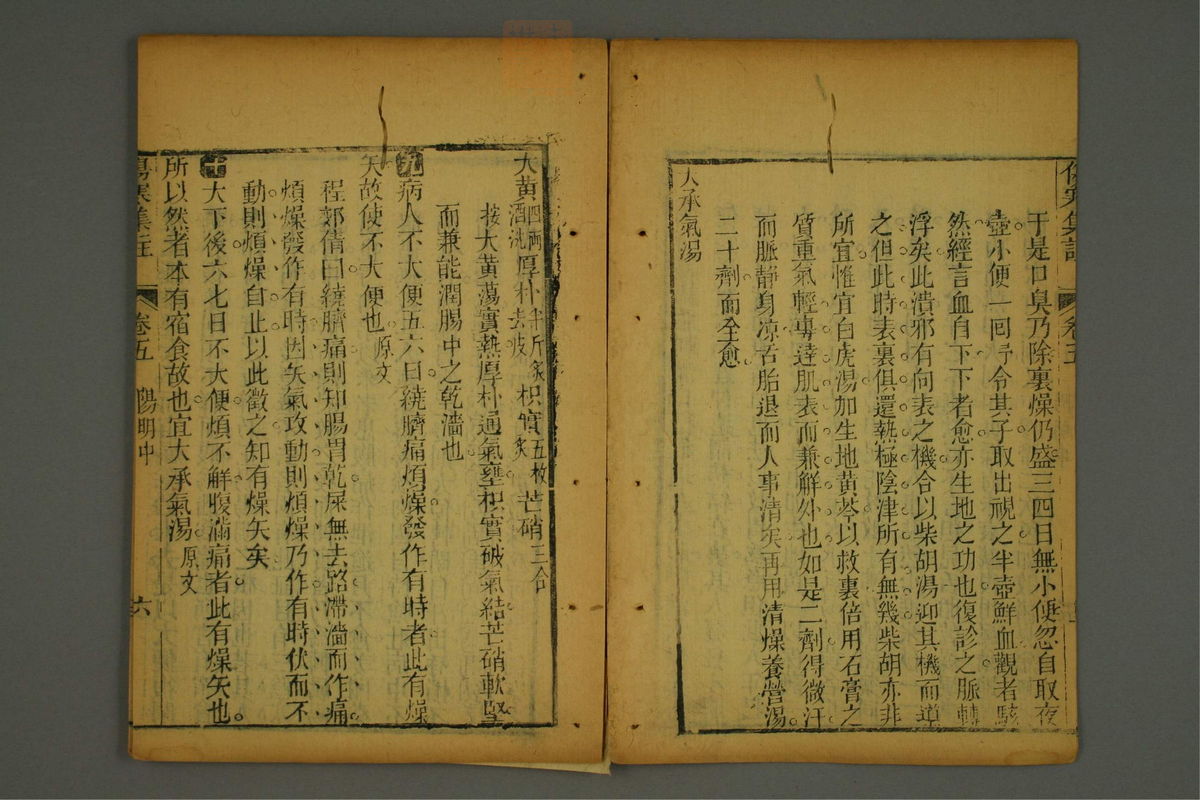 傷寒集註
卷五
于是口臭乃除裏燥仍盛三四日無小便忽自取夜
壺小便一回令其子取出視之半壺鮮血觀者駭
然經言血自下下者愈亦生地之功也復診之脈轉
浮矣此潰邪有向表之機合以柴胡湯迎其機而導
之但此時表裏俱還熱極陰津所有無幾柴胡亦非
所宜惟宜白虎湯加生地黃芩以救裏倍用石膏之
質重氣輕專達肌表而兼解外也如是二劑得微汗
而脈靜身凉舌胎退而人事清矣再用清燥養營湯
二十劑而全愈
大承氣湯
大黃四兩酒洗厚朴半斤炙去皮枳實五枚炙芒硝三合
按大黃蕩實熱厚朴通氣壅枳實破氣結芒硝軟堅
而兼能潤腸中之乾濇也
九病人不大便五六日繞臍痛煩燥發作有時者此有燥
矢故使不大便也原文
程郊倩曰繞臍痛則知腸胃乾屎無去路滯濇而作痛
煩燥發作有時因矢氣攻動則煩燥乃作有時伏而不
動則煩燥自止以此徵之知有燥矢矣
十大下後六七日不大便煩不解腹滿痛者此有燥矢也
所以然者本有宿食故也宜大承氣湯原文
傷寒集註
卷五
陽明中
六